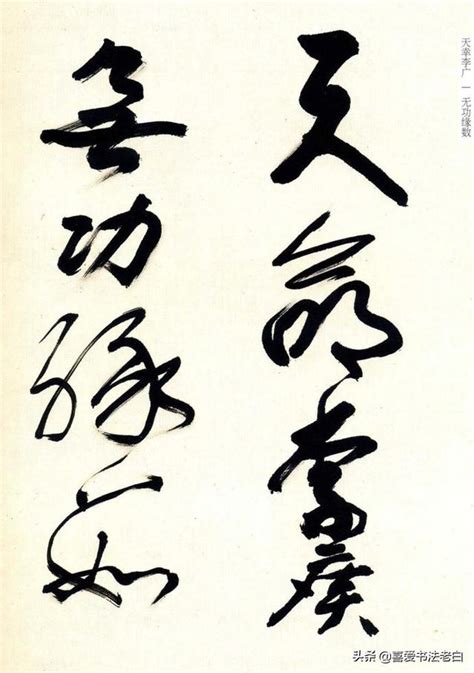 天幸李广 一 无功缘数
天幸李廣
無功緣數
头条 @喜爱书法老白